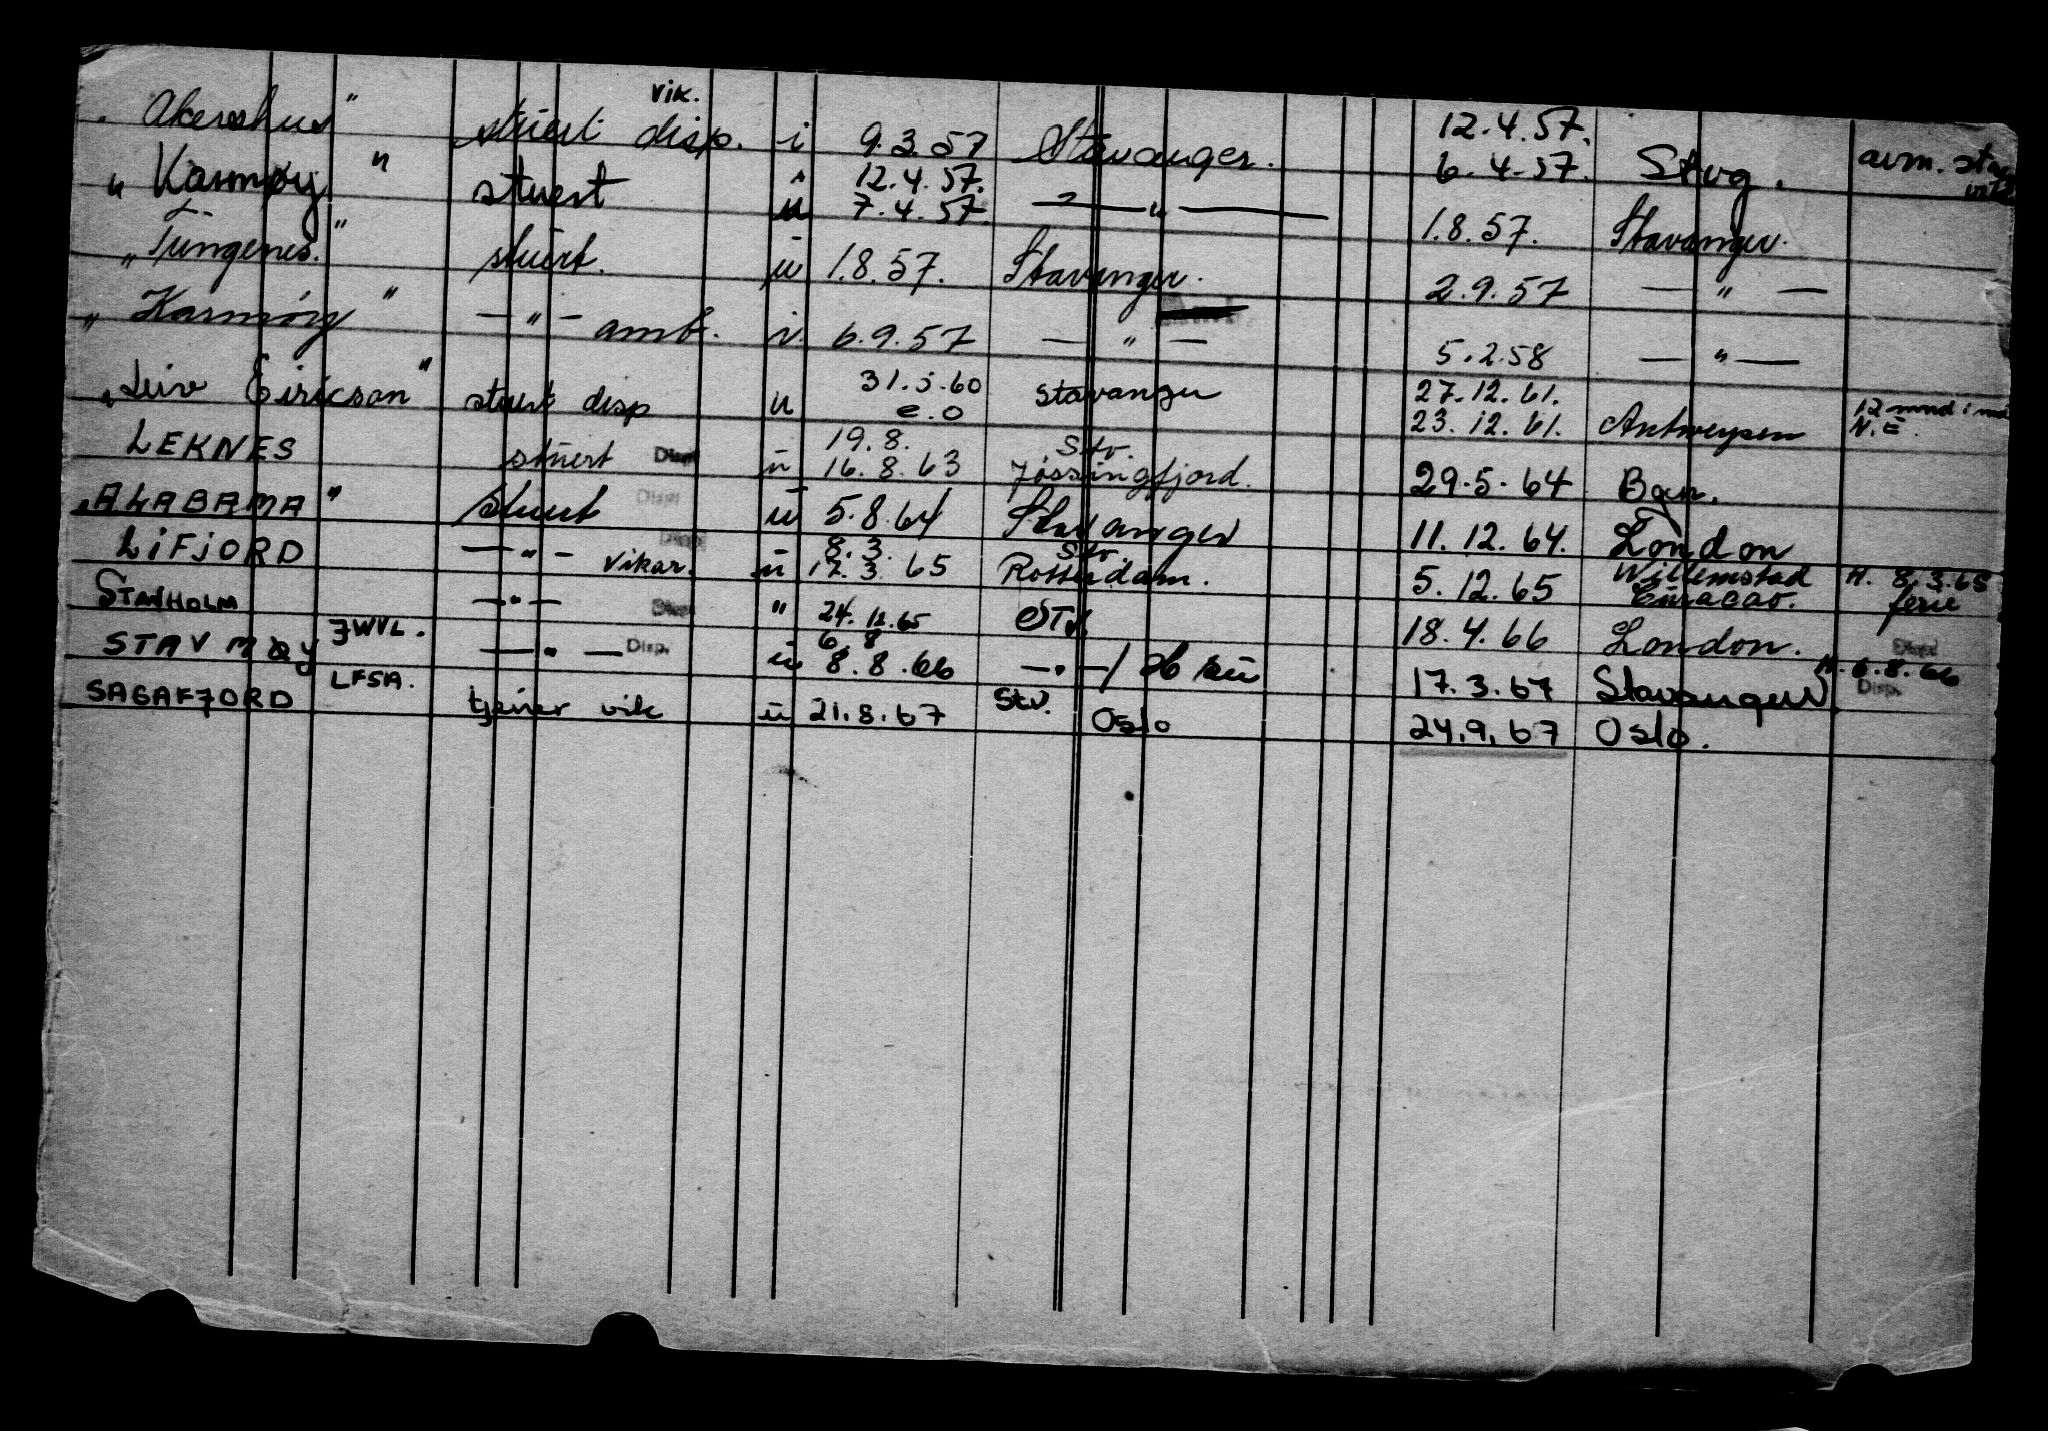 vik.
" Akershus " stuert disp. i 9.3.57 Stavanger. 12.4.57. 6.4.57. Stvg. avm.
" Karmøy " stuert u 12.4.57. 7.4.57. — " — 1.8.57. Stavanger.
" Tungenes. " stuert. u 1.8.57. Stavanger. 2.9.57 — " —
" Karmøy " — " — amb. i. 6.9.57 — " — 5.2.58 — " —
" Leiv Eiricson " stuert disp u 31.5.60 e.o Stavanger 27.12.61. 23.12.61. Antwerpen 12 mnd i
N.E.
LEKNES stuert Disp u 19.8. 16.8.63 Stv. Jøssingfjord. 29.5.64 Bgn.
"ALABAMA" stuert Disp u 5.8.64 Stavanger 11.12.64. London
LIFJORD — " — vikar. Disp u 8.3. 17.3.65 Stv. Rotterdam. 5.12.65 Willemstad Curacao. H. 8.3.65 ferie
STAVHOLM — " — Disp " 24.12.65 STV. 18.4.66 London. Disp
STAVMØY JWVL. — " — Disp. u 6.8 8.8.66 — " — / 17.3.67 Stavanger H. 6.8.66 Disp.
SAGAFJORD LFSA. tjener vik u 21.8.67 Stv. Oslo 24.9.67 Oslo.